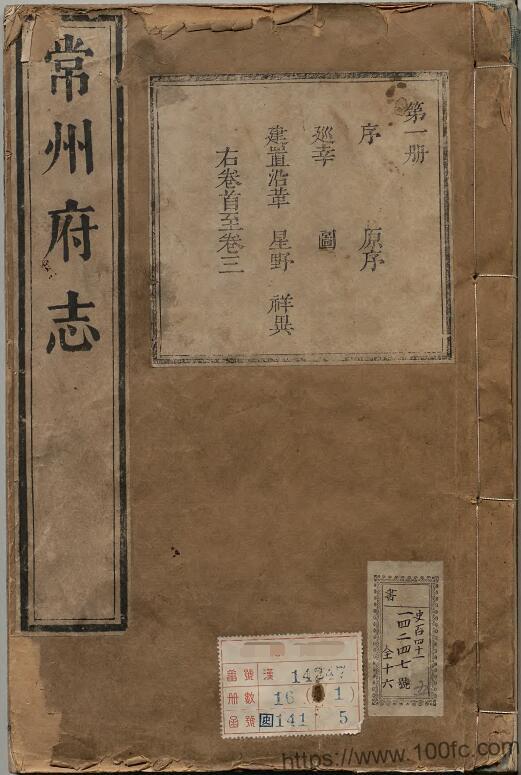 常州府志
第一册
序 原序
巡幸 圖
建置沿革 星野 祥異
右卷首至卷三
書
史百四十一
一四二四七號
全十六
番號 漢 14247
册數 16 ( 1 )
函號 史 141 5
https://www.100fc.com